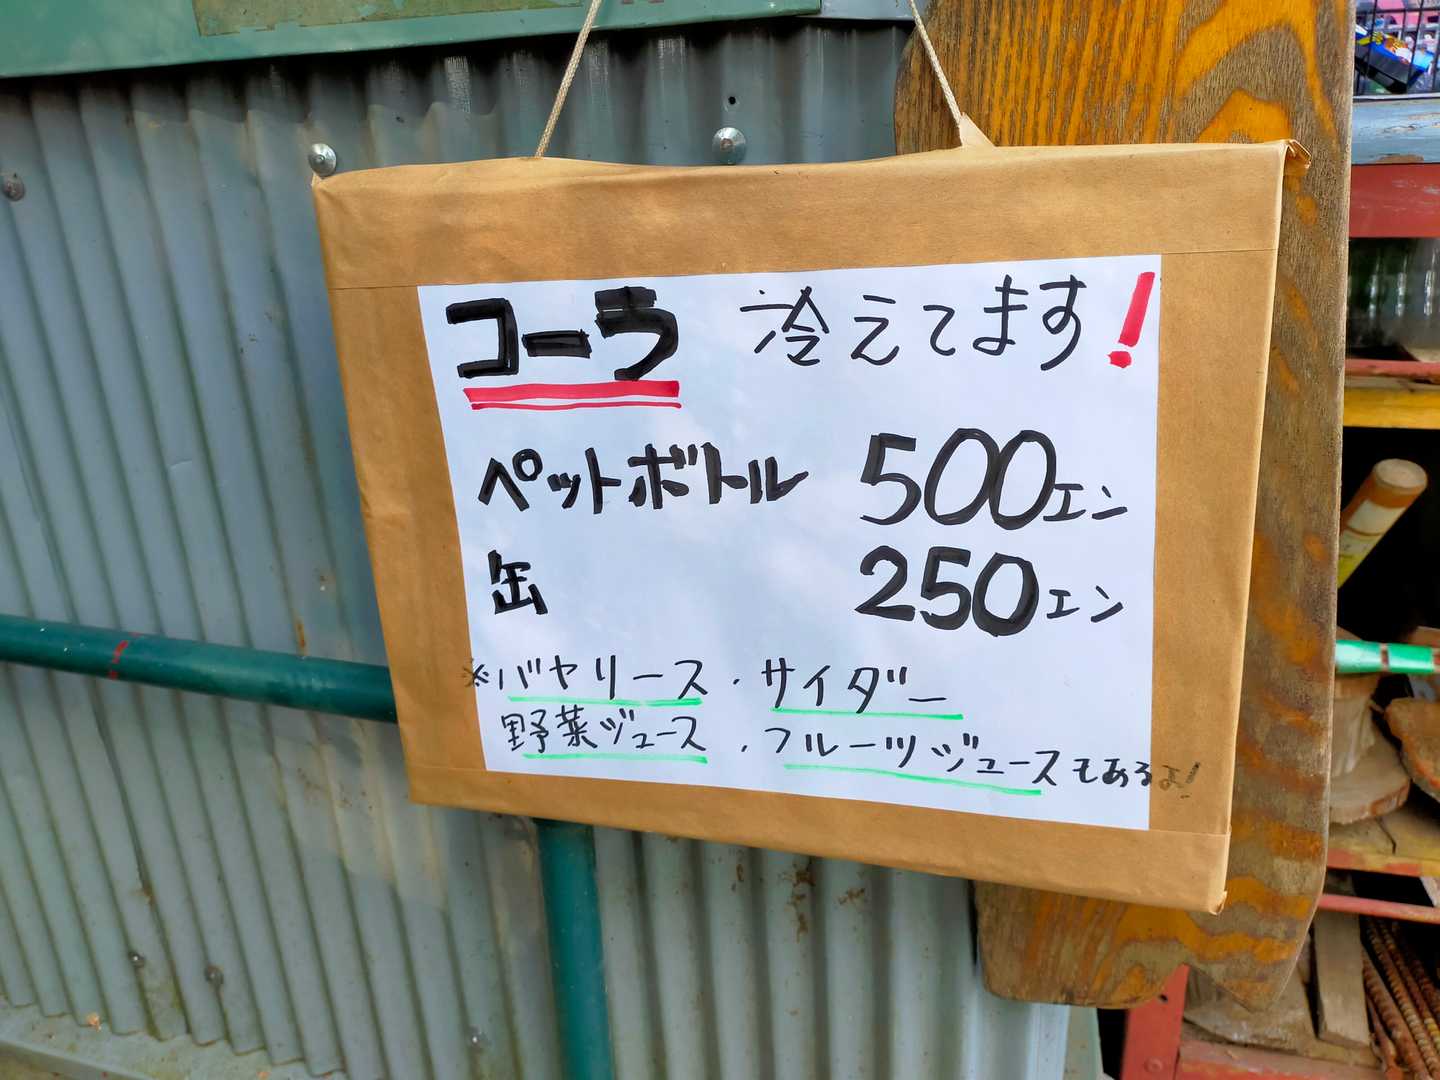 コーラ 冷えてます!
ペットボトル 500エン
缶 250エン
※バヤリース・サイダー
野菜ジュース・フルーツジュースもあるよ!